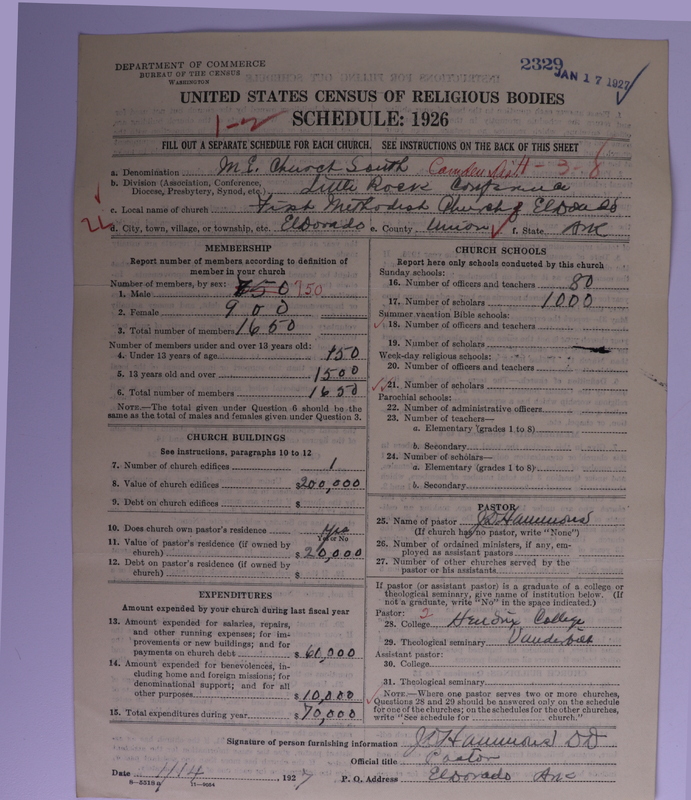 DEPARTMENT OF COMMERCE
BUREAU OF THE CENSUS
WASHINGTON
2329 JAN 17 1927
UNITED STATES CENSUS OF RELIGIOUS BODIES
1-2
SCHEDULE: 1926
FILL OUT A SEPARATE SCHEDULE FOR EACH CHURCH. SEE INSTRUCTIONS ON THE BACK OF THIS SHEET
a. Denomination M.E. Church South 1-3-8
b. Division (Association, Conference, Diocese, Presbytery, Synod, etc.) Little Rock Conference
c. Local name of church First Methodist Church of ElDorado
d. City, town, village, or township, etc. ElDorado e. County Union f. State Ark
MEMBERSHIP
Report number of members according to definition of
member in your church
Number of members, by sex:
1. Male 750 750
2. Female 900
3. Total number of members 1650
Number of members under and over 13 years old:
4. Under 13 years of age 150
5. 13 years old and over 1500
6. Total number of members 1650
NOTE.—The total given under Question 6 should be the
same as the total of males and females given under Question 3.
CHURCH BUILDINGS
See instructions, paragraphs 10 to 12
7. Number of church edifices 1
8. Value of church edifices $200,000
9. Debt on church edifices $
10. Does church own pastor's residence Yes
Yes or No
11. Value of pastor's residence (if owned by
church) $20,000
12. Debt on pastor's residence (if owned by
church) $
EXPENDITURES
Amount expended by your church during last fiscal year
13. Amount expended for salaries, repairs,
and other running expenses; for im-
provements or new buildings; and for
payments on church debt $60,000
14. Amount expended for benevolences, in-
cluding home and foreign missions; for
denominational support; and for all
other purposes $10,000
15. Total expenditures during year $70,000
CHURCH SCHOOLS
Report here only schools conducted by this church
Sunday schools:
16. Number of officers and teachers 80
17. Number of scholars 1000
Summer vacation Bible schools:
18. Number of officers and teachers
19. Number of scholars
Week-day religious schools:
20. Number of officers and teachers
21. Number of scholars
Parochial schools:
22. Number of administrative officers
23. Number of teachers—
a. Elementary (grades 1 to 8)
b. Secondary
24. Number of scholars—
a. Elementary (grades 1 to 8)
b. Secondary
PASTOR
25. Name of pastor J D Hammons
(If church has no pastor, write "None")
26. Number of ordained ministers, if any, em-
ployed as assistant pastors
27. Number of other churches served by the
pastor or his assistants
If pastor (or assistant pastor) is a graduate of a college or
theological seminary, give name of institution below. (If
not a graduate, write "No" in the space indicated.)
Pastor: 2
28. College Hendrix College
29. Theological seminary Vanderbilt
Assistant pastor:
30. College
31. Theological seminary
NOTE.—Where one pastor serves two or more churches,
Questions 28 and 29 should be answered only on the schedule
for one of the churches; on the schedules for the other churches,
write "See schedule for church."
Signature of person furnishing information J D Hammons D D
Official title Pastor
Date 1/14 1927 P. O. Address ElDorado Ark
8-5518a 11-9064